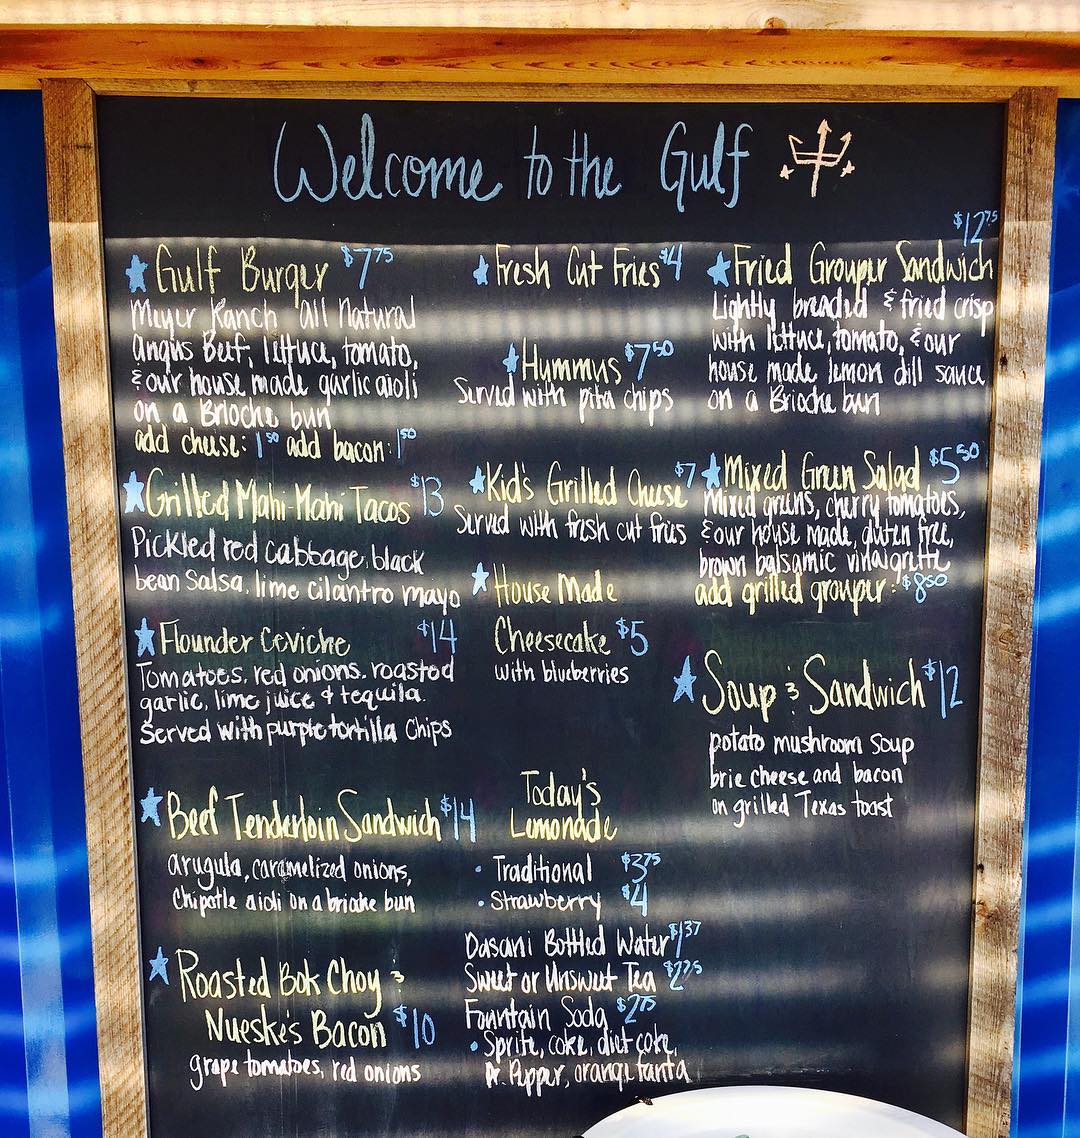 Welcome to the Gulf
Gulf Burger $7.75
Meyer Ranch all Natural
angus Beef, lettuce, tomato,
& our house made garlic aioli
on a Brioche bun
add cheese: 1.50 add bacon: 1.50
Grilled Mahi-Mahi Tacos $13
Pickled red cabbage, black
bean salsa, lime cilantro mayo
Flounder Ceviche $14
Tomatoes, red onions, roasted
garlic, lime juice & tequila.
Served with purple tortilla chips
Beef Tenderloin Sandwich $14
arugula, caramelized onions,
Chipotle aioli on a brioche bun
Roasted Bok Choy &
Nueske's Bacon $10
grape tomatoes, red onions
Fresh Cut Fries $4
Hummus $7.50
Served with pita chips
Kid's Grilled Cheese $7
Served with fresh cut fries
House Made
Cheesecake $5
with blueberries
Today's
Lemonade
• Traditional $3.75
• Strawberry $4
Dasani Bottled Water $1.37
Sweet or Unsweet Tea $2.75
Fountain Soda $2.75
• Sprite, coke, diet coke,
Dr. Pepper, orange fanta
$12.75
Fried Grouper Sandwich
Lightly breaded & fried crisp
with lettuce, tomato, & our
house made lemon dill sauce
on a Brioche bun
Mixed Green Salad $5.50
Mixed greens, cherry tomatoes,
& our house made, gluten free,
brown balsamic vinaigrette
add grilled grouper: $8.50
Soup & Sandwich $12
potato mushroom soup
brie cheese and bacon
on grilled Texas toast